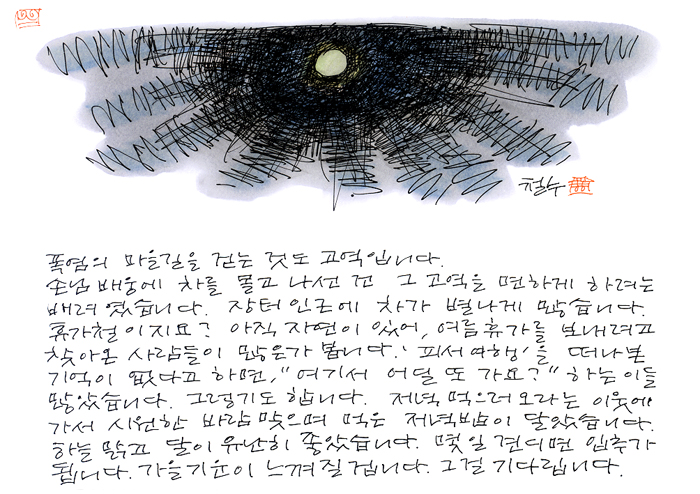 철수
폭염의 마을길을 걷는 것도 고역입니다.
손님 배웅에 차를 몰고 나선 건 그 고역을 면하게 하려는
배려였습니다. 장터 인근에 차가 별나게 많습니다.
휴가철이지요? 아직 자연이 있어, 여름휴가를 보내려고
찾아온 사람들이 많은가 봅니다. '피서여행'을 떠나본
기억이 없다고 하면, "여기서 어딜 또 가요?" 하는 이들
많았습니다. 그렇기도 합니다. 저녁 먹으러 오라는 이웃에
가서 시원한 바람 맞으며 먹은 저녁밥이 달았습니다.
하늘 맑고 달이 유난히 좋았습니다. 몇일 견디면 입추가
됩니다. 가을기운이 느껴질 겁니다. 그걸 기다립니다.